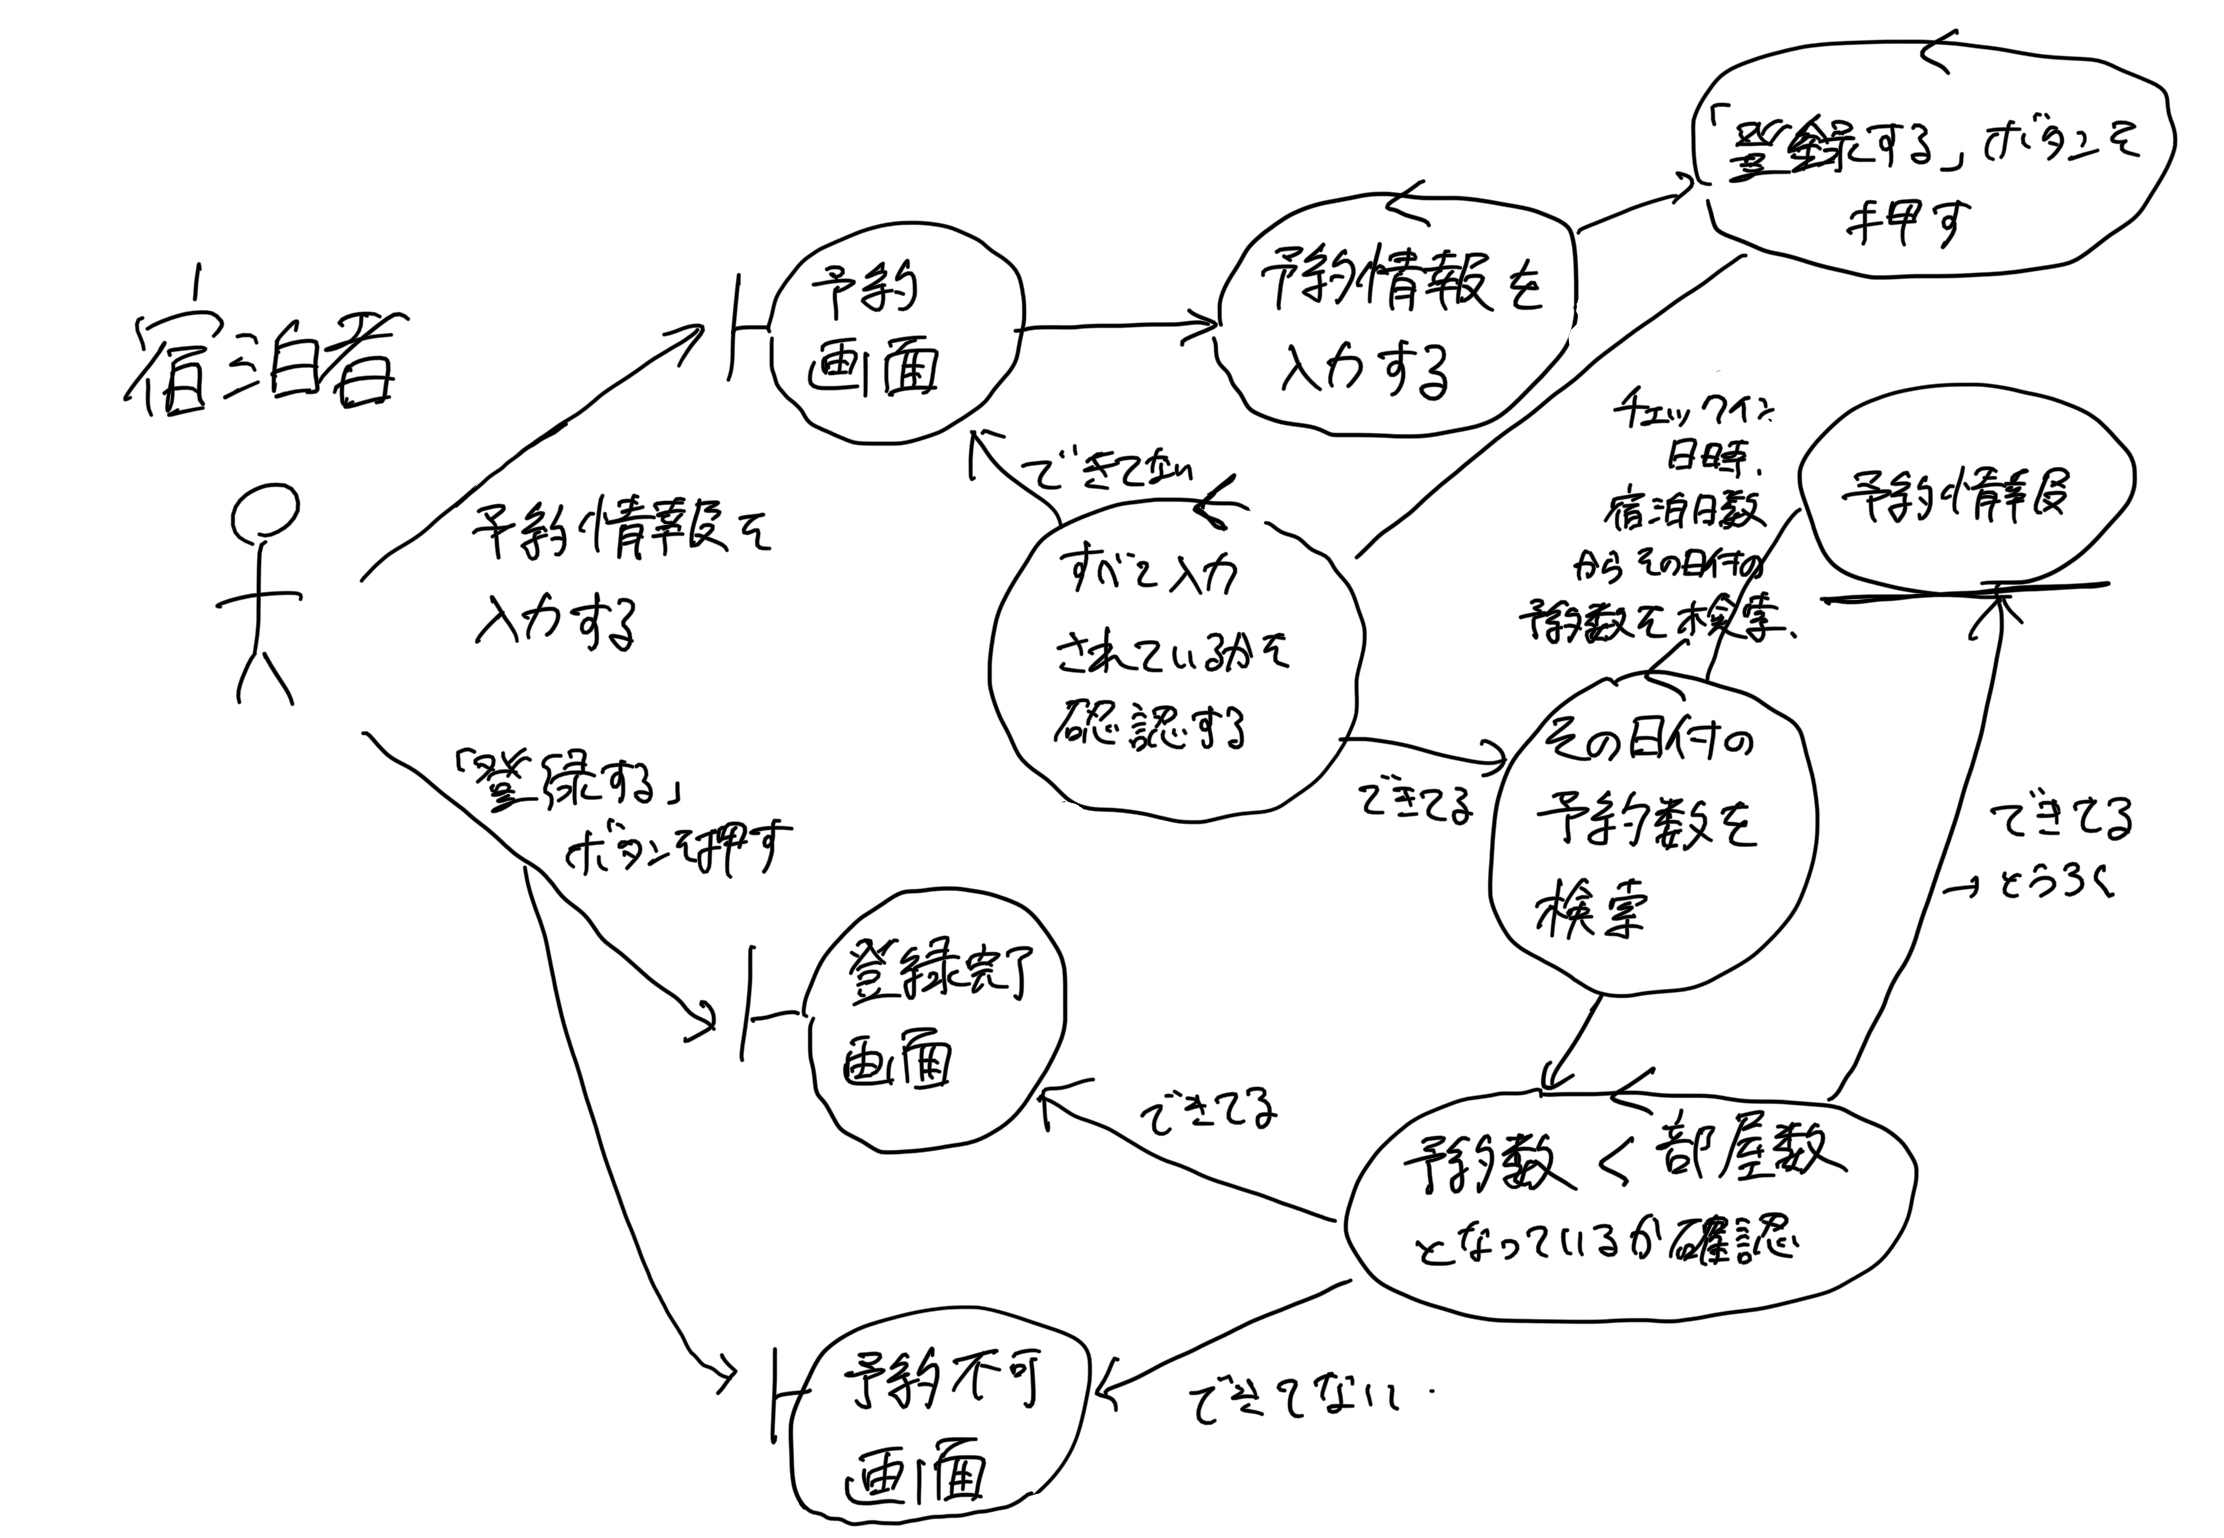 宿泊者
予約情報を
入力する
「登録する」
ボタンを押す
予約
画面
予約情報を
入力する
「登録する」ボタンを
押す
できてない
すべて入力
されているかを
確認する
できてる
チェックイン
日時、
宿泊日数
からその日付の
予約数を検索、
予約情報
その日付の
予約数を
検索
できてる
→とうろく
予約数<部屋数
となっているか確認
できてる
登録完了
画面
できてない
予約不可
画面